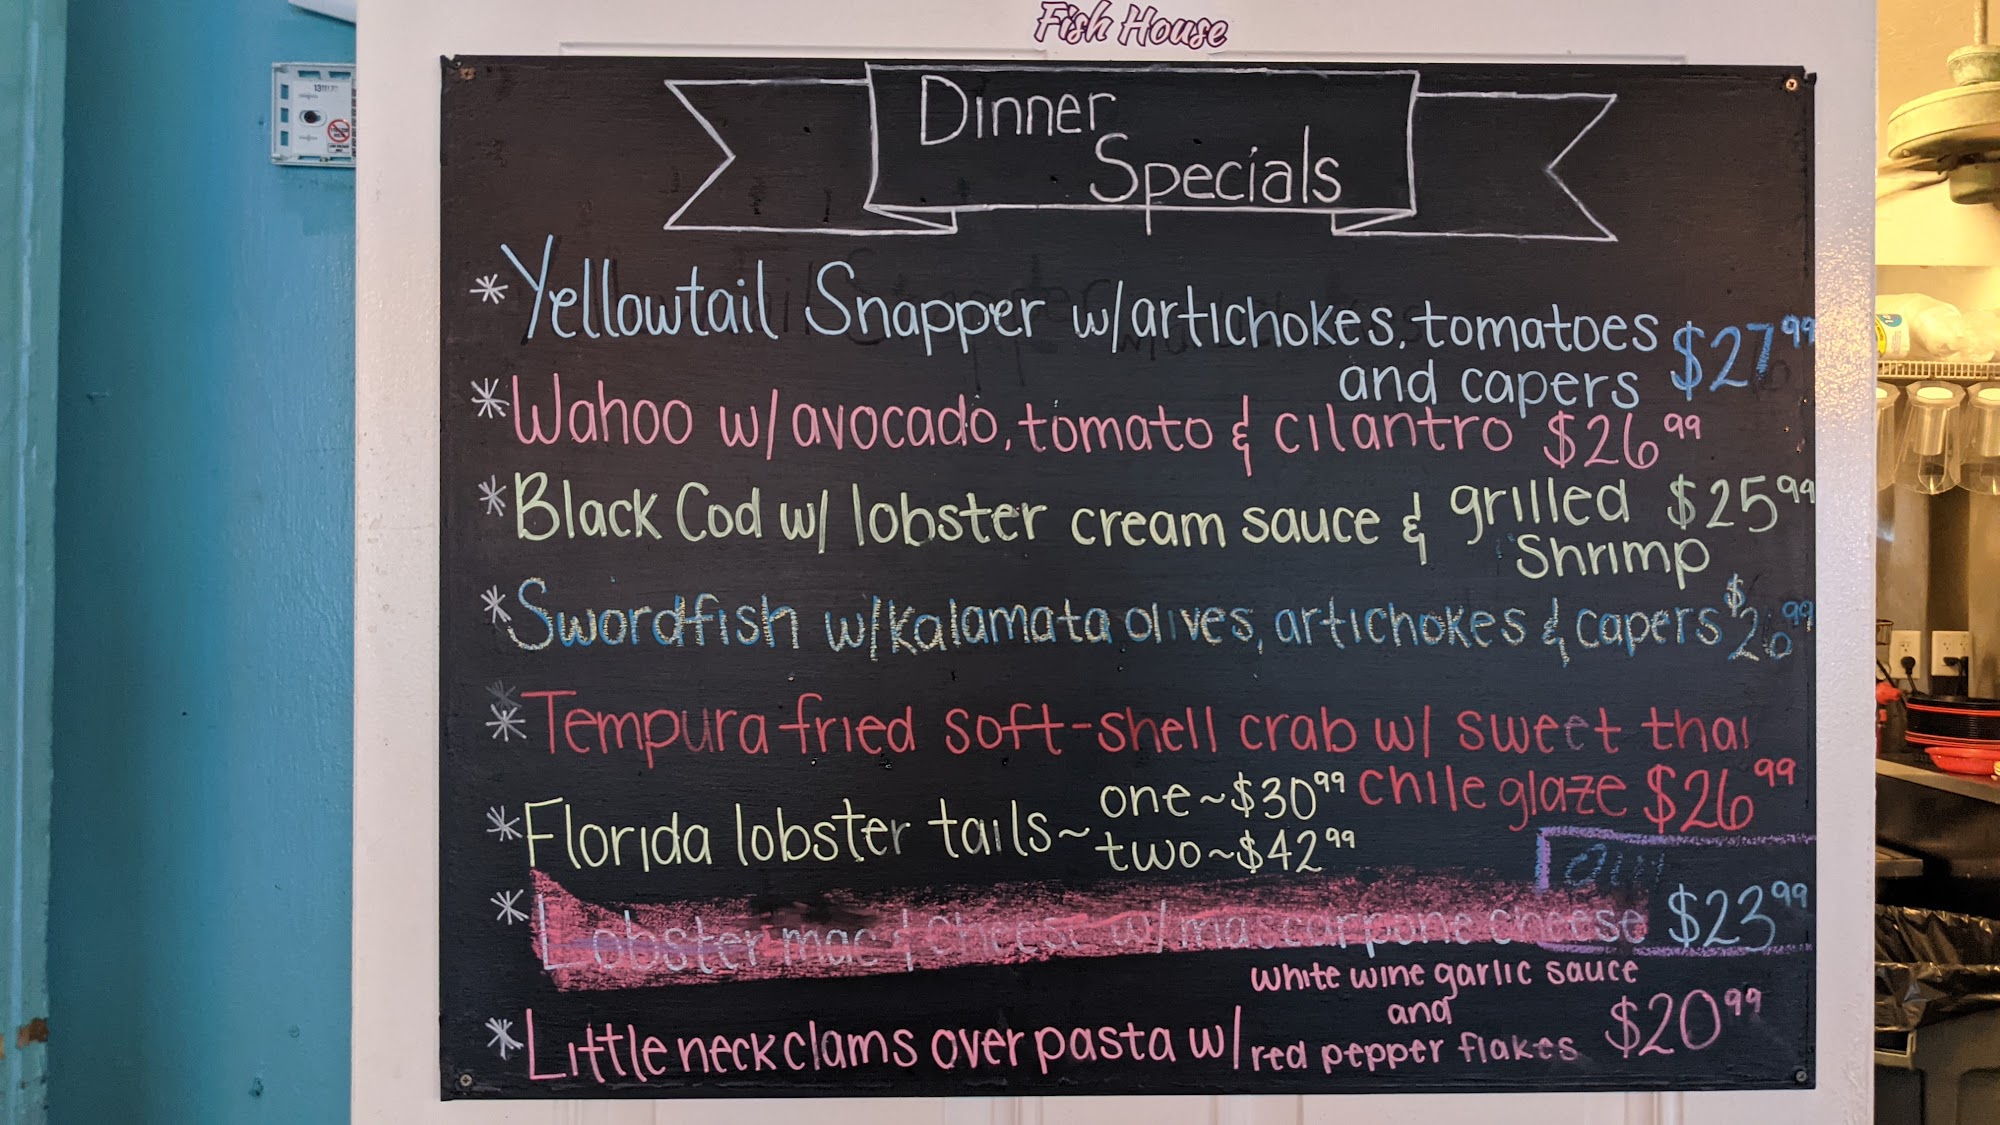 Fish House
Dinner
Specials
* Yellowtail Snapper w/artichokes, tomatoes
and capers $27.99
* Wahoo w/avocado, tomato & cilantro $26.99
* Black Cod w/ lobster cream sauce & grilled $25.99
Shrimp
* Swordfish w/kalamata olives, artichokes & capers $26.99
* Tempura fried soft-shell crab w/ sweet thai
chile glaze $26.99
* Florida lobster tails~ one~$30.99
two~$42.99
* Lobster mac & cheese w/mascarpone cheese $23.99
* Little neck clams over pasta w/ white wine garlic sauce
and
red pepper flakes $20.99